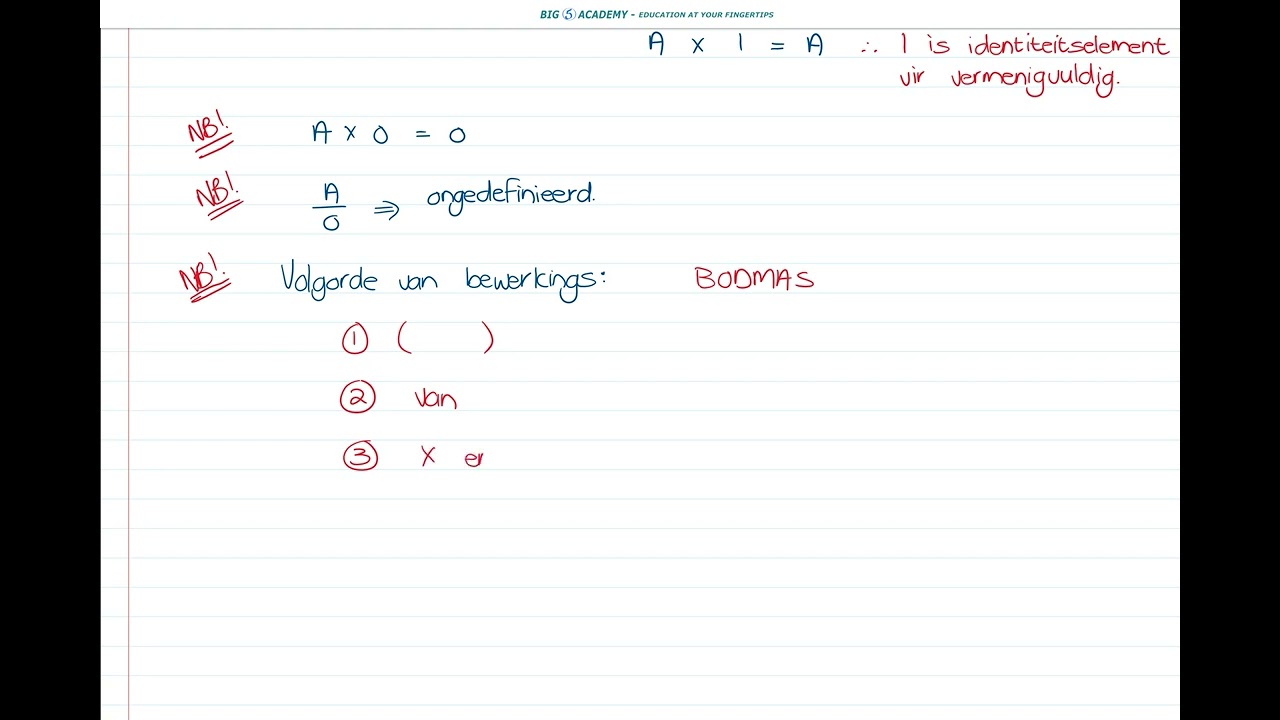 BIG 5 ACADEMY - EDUCATION AT YOUR FINGERTIPS
A x 1 = A ∴ 1 is identiteitselement
vir vermenigvuldig.
NB! A x 0 = 0
NB! A/0 ⇒ ongedefinieerd.
NB! Volgorde van bewerkings: BODMAS
① ( )
② van
③ x er